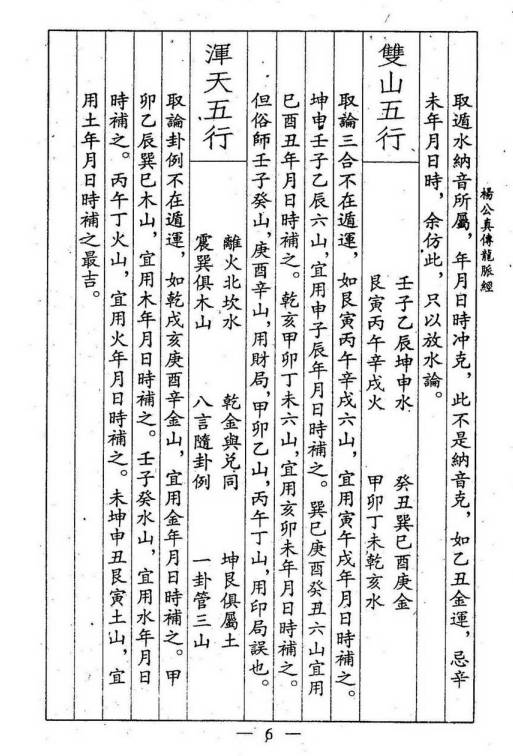 楊公真傳龍脈經
取遁水納音所屬,年月日時冲克,此不是納音克,如乙丑金運,忌辛
未年月日時,余仿此,只以放水論。
雙山五行
壬子乙辰坤申水 癸丑巽巳酉庚金
艮寅丙午辛戌火 甲卯丁未乾亥水
取論三合不在遁運,如艮寅丙午辛戌六山,宜用寅午戌年月日時補之。
坤申壬子乙辰六山,宜用申子辰年月日時補之。巽巳庚酉癸丑六山宜用
巳酉丑年月日時補之。乾亥甲卯丁未六山,宜用亥卯未年月日時補之。
但俗師壬子癸山,庚酉辛山,用財局,甲卯乙山,丙午丁山,用印局誤也。
渾天五行
離火北坎水 乾金與兌同 坤艮俱屬土
震巽俱木山 八言隨卦例 一卦管三山
取論卦例不在遁運,如乾戌亥庚酉辛金山,宜用金年月日時補之。甲
卯乙辰巽巳木山,宜用木年月日時補之。壬子癸水山,宜用水年月日
時補之。丙午丁火山,宜用火年月日時補之。未坤申丑艮寅土山,宜
用土年月日時補之最吉。
— 6 —